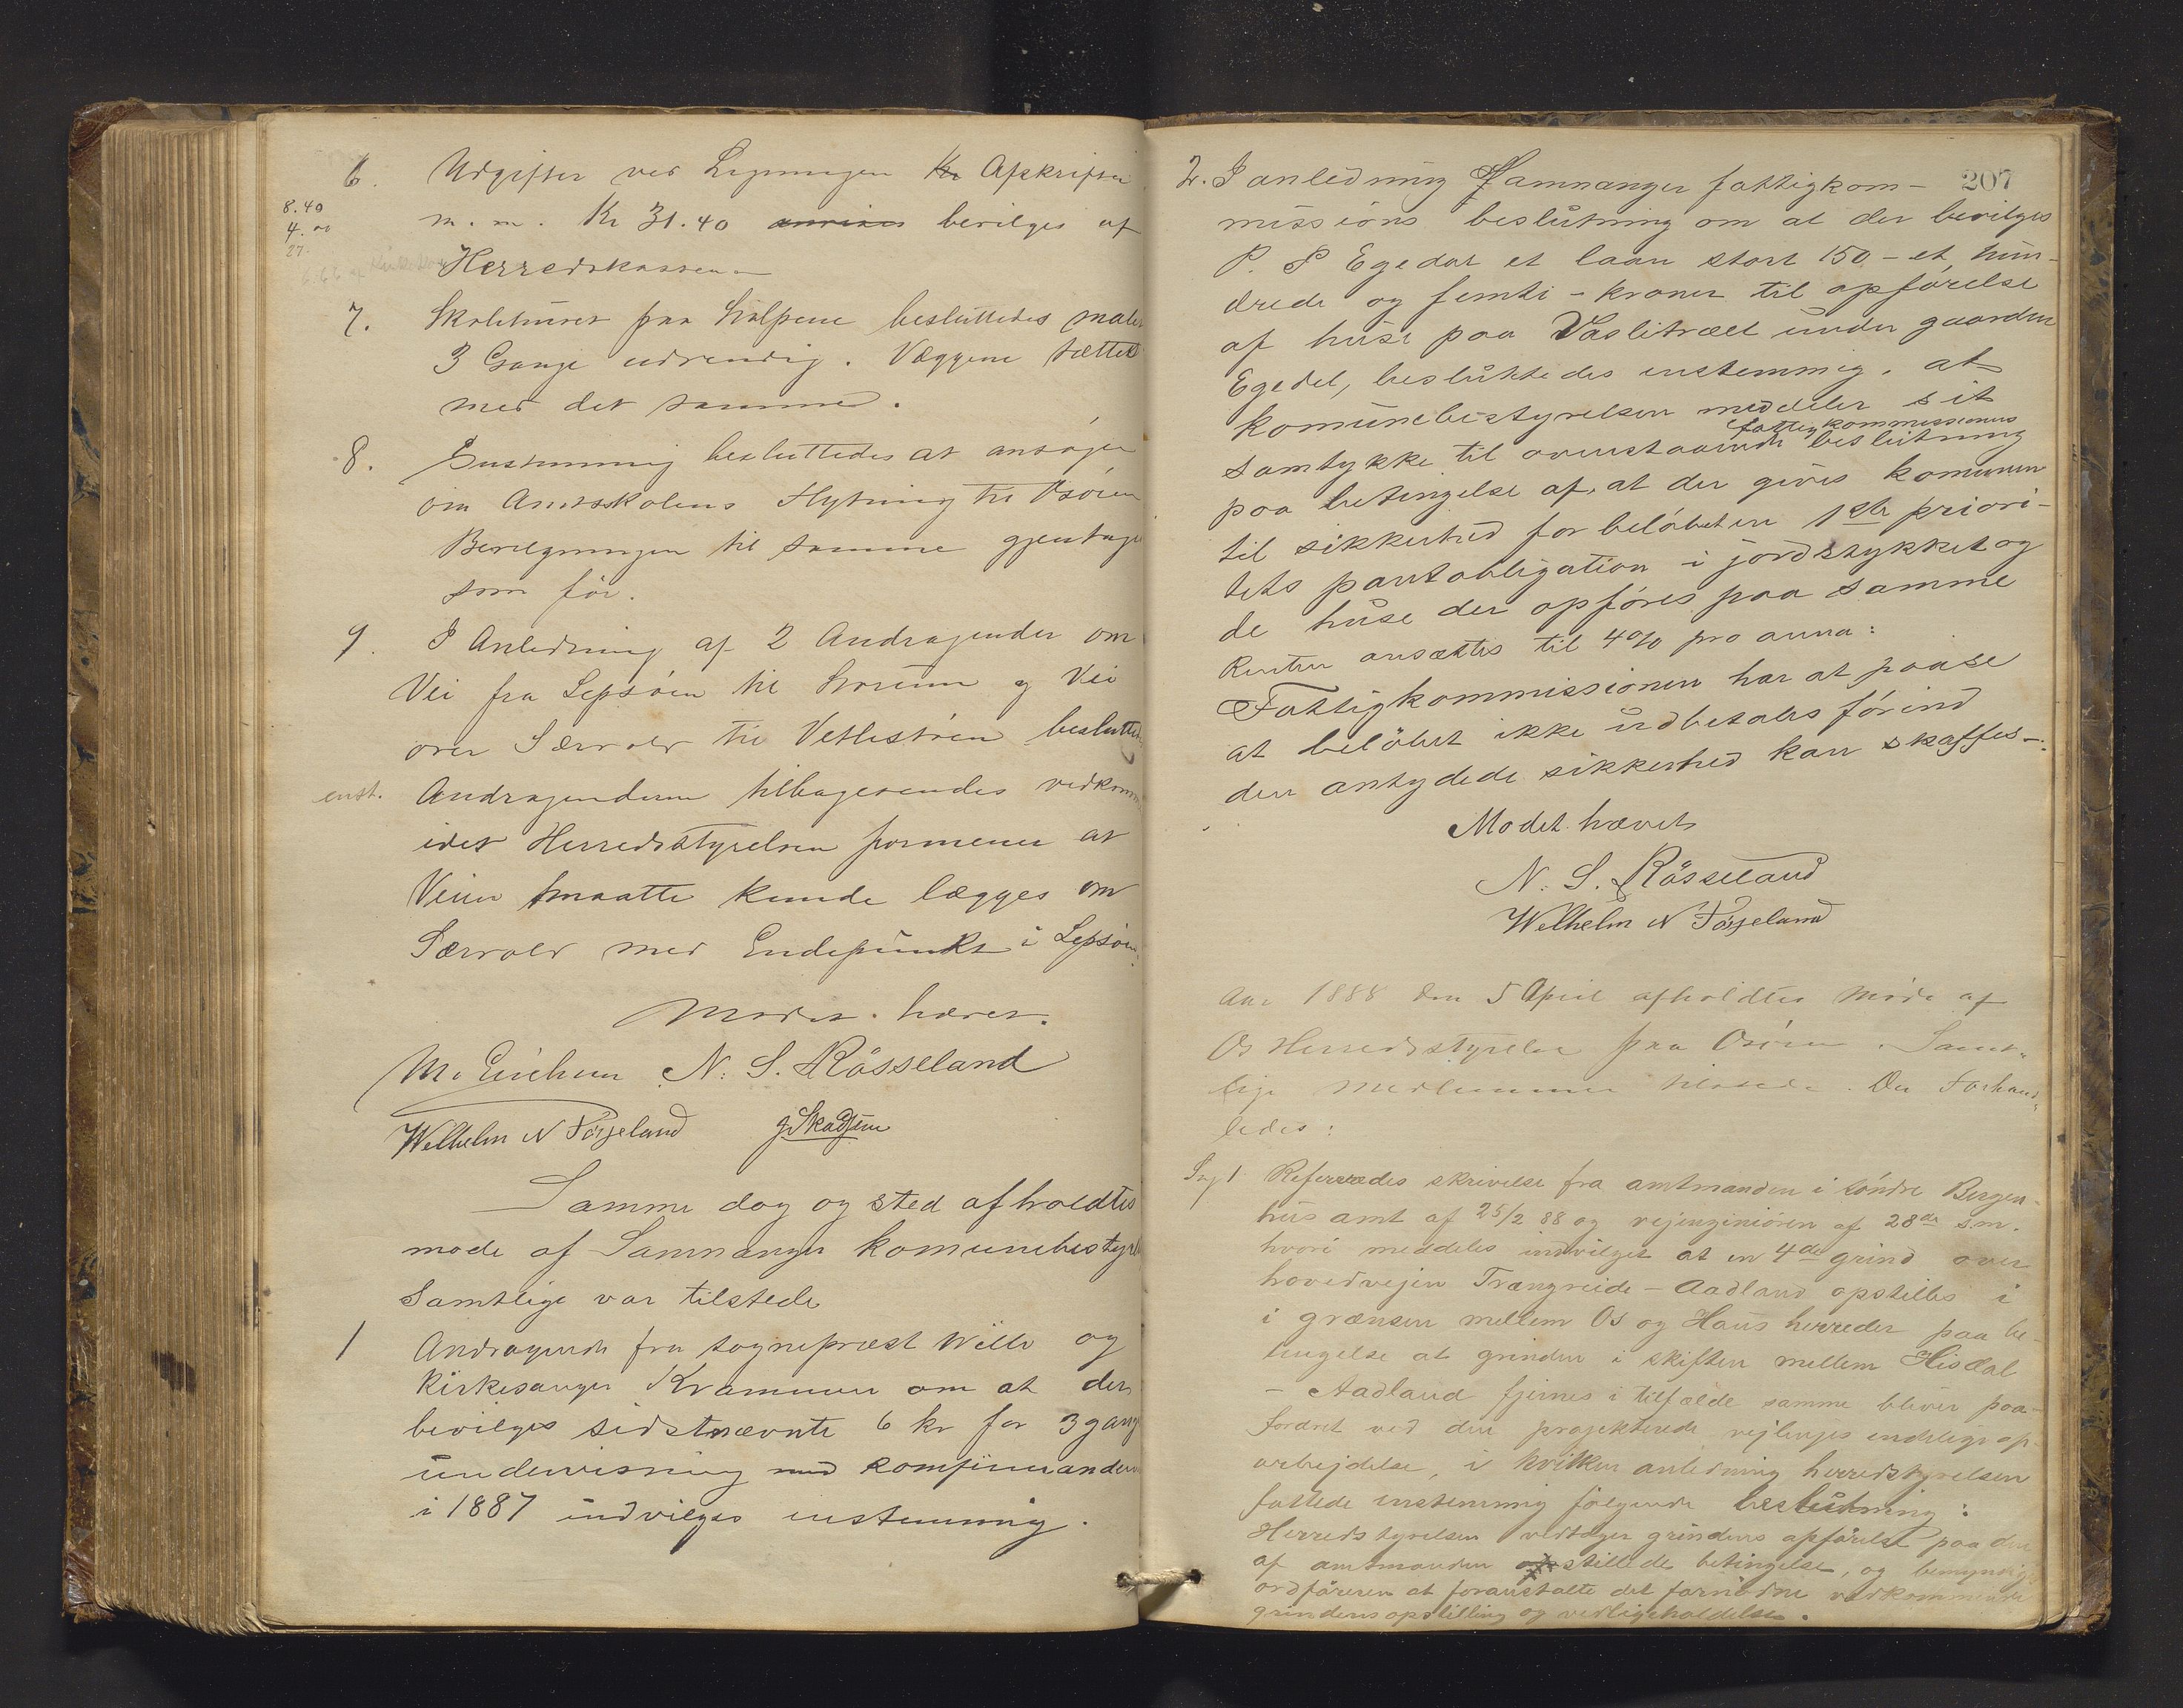 6. Udgifter ved Ligningen Kr Afskrifter
8.40
4.00
27.
m. m. Kr 31.40 anvises bevilges af
Herredskassen
7. Skolehuset paa Hálpene besluttedes malet
3 Gange udvendig. Væggene tættet
med det samme.
8. Enstemmig besluttedes at ansøge
om Amtsskolens Flytning til Osören
Bevilgningen til samme gjentages
som för.
9. I Anledning af 2 Andragender om
Vei fra Lepsöen til og Vei
over Særvold til Vetlestöen besluttedes
enst. Andragenderne tilbagesendes vedkomm
idet Herredsstyrelsen formener at
Veien maatte kunde lægges om
Særvold med Endepunkt i Lepsöen.
Mödet hævet.
M. N. S. Røsseland
Welhelm N Tøsseland
Samme dag og sted afholdtes
møde af Samnanger komunebestyrel
Samtlige var tilstede
1 Andragende fra sognepræst Wille og
Kirkesanger Kvammen om at der
bevilges sidstnævnte 6 kr for 3 gang
undervisning med komfirmanderne
i 1887 indvilges enstemmig.
207
2. I anledning Samnanger fattigkom-
missions beslutning om at der bevilges
P. P Egedal et laan stort 150 - et hun-
drede og femti - kroner til opförelse
af huse paa Vaslitræet under gaarden
Egedel, besluttedes enstemmig, at
komunebestyrelsen meddeler sit
fattigkommissionens
samtykke til ovenstaaende beslutning
paa betingelse af, at der gives komunen
til sikkerhed for belöbet en 1ste priori-
tets pantobligation i jordstykket og
de huse der opföres paa samme
Renten ansættes til 4% pro anna:
Fattigkommissionen har at paase
at belöbet ikke udbetales förind
den antydede sikkerhed kan skaffes-:
Mødet hævet
N. S. Røsseland
Welhelm N Tøsseland
Aar 1888 den 5 April afholdtes Möde af
Os Herredsstyrelse paa Osören. Samt-
lige Medlemmer tilstede. Der Forhand-
ledes:
Sag 1 Refereredes skrivelse fra amtmanden i söndre Bergen-
hus amt af 25/2 88 og vejinginiören af 28de s.m.
hvori meddeles indvilget at en 4de grind over
hovedvejen Trængreide - Aadland opstilles i
i grænsen mellem Os og Haus herreder paa be-
tingelse at grinden i skiften mellem Hisdal
- Aadland fjernes i tilfælde samme bliver paa-
fordret ved den projekterede vejlinjes endelige op-
arbejdelse, i hvilken anledning herredstyrelsen
fattede enstemmig fölgende beslutning:
Herredstyrelsen vedtager grindens opförelse paa den
af amtmanden opstillede betingelse, og bemyndiger
ordföreren at foranstalte det fornödne vedkommende
grindens opstilling og vedligeholdelse.